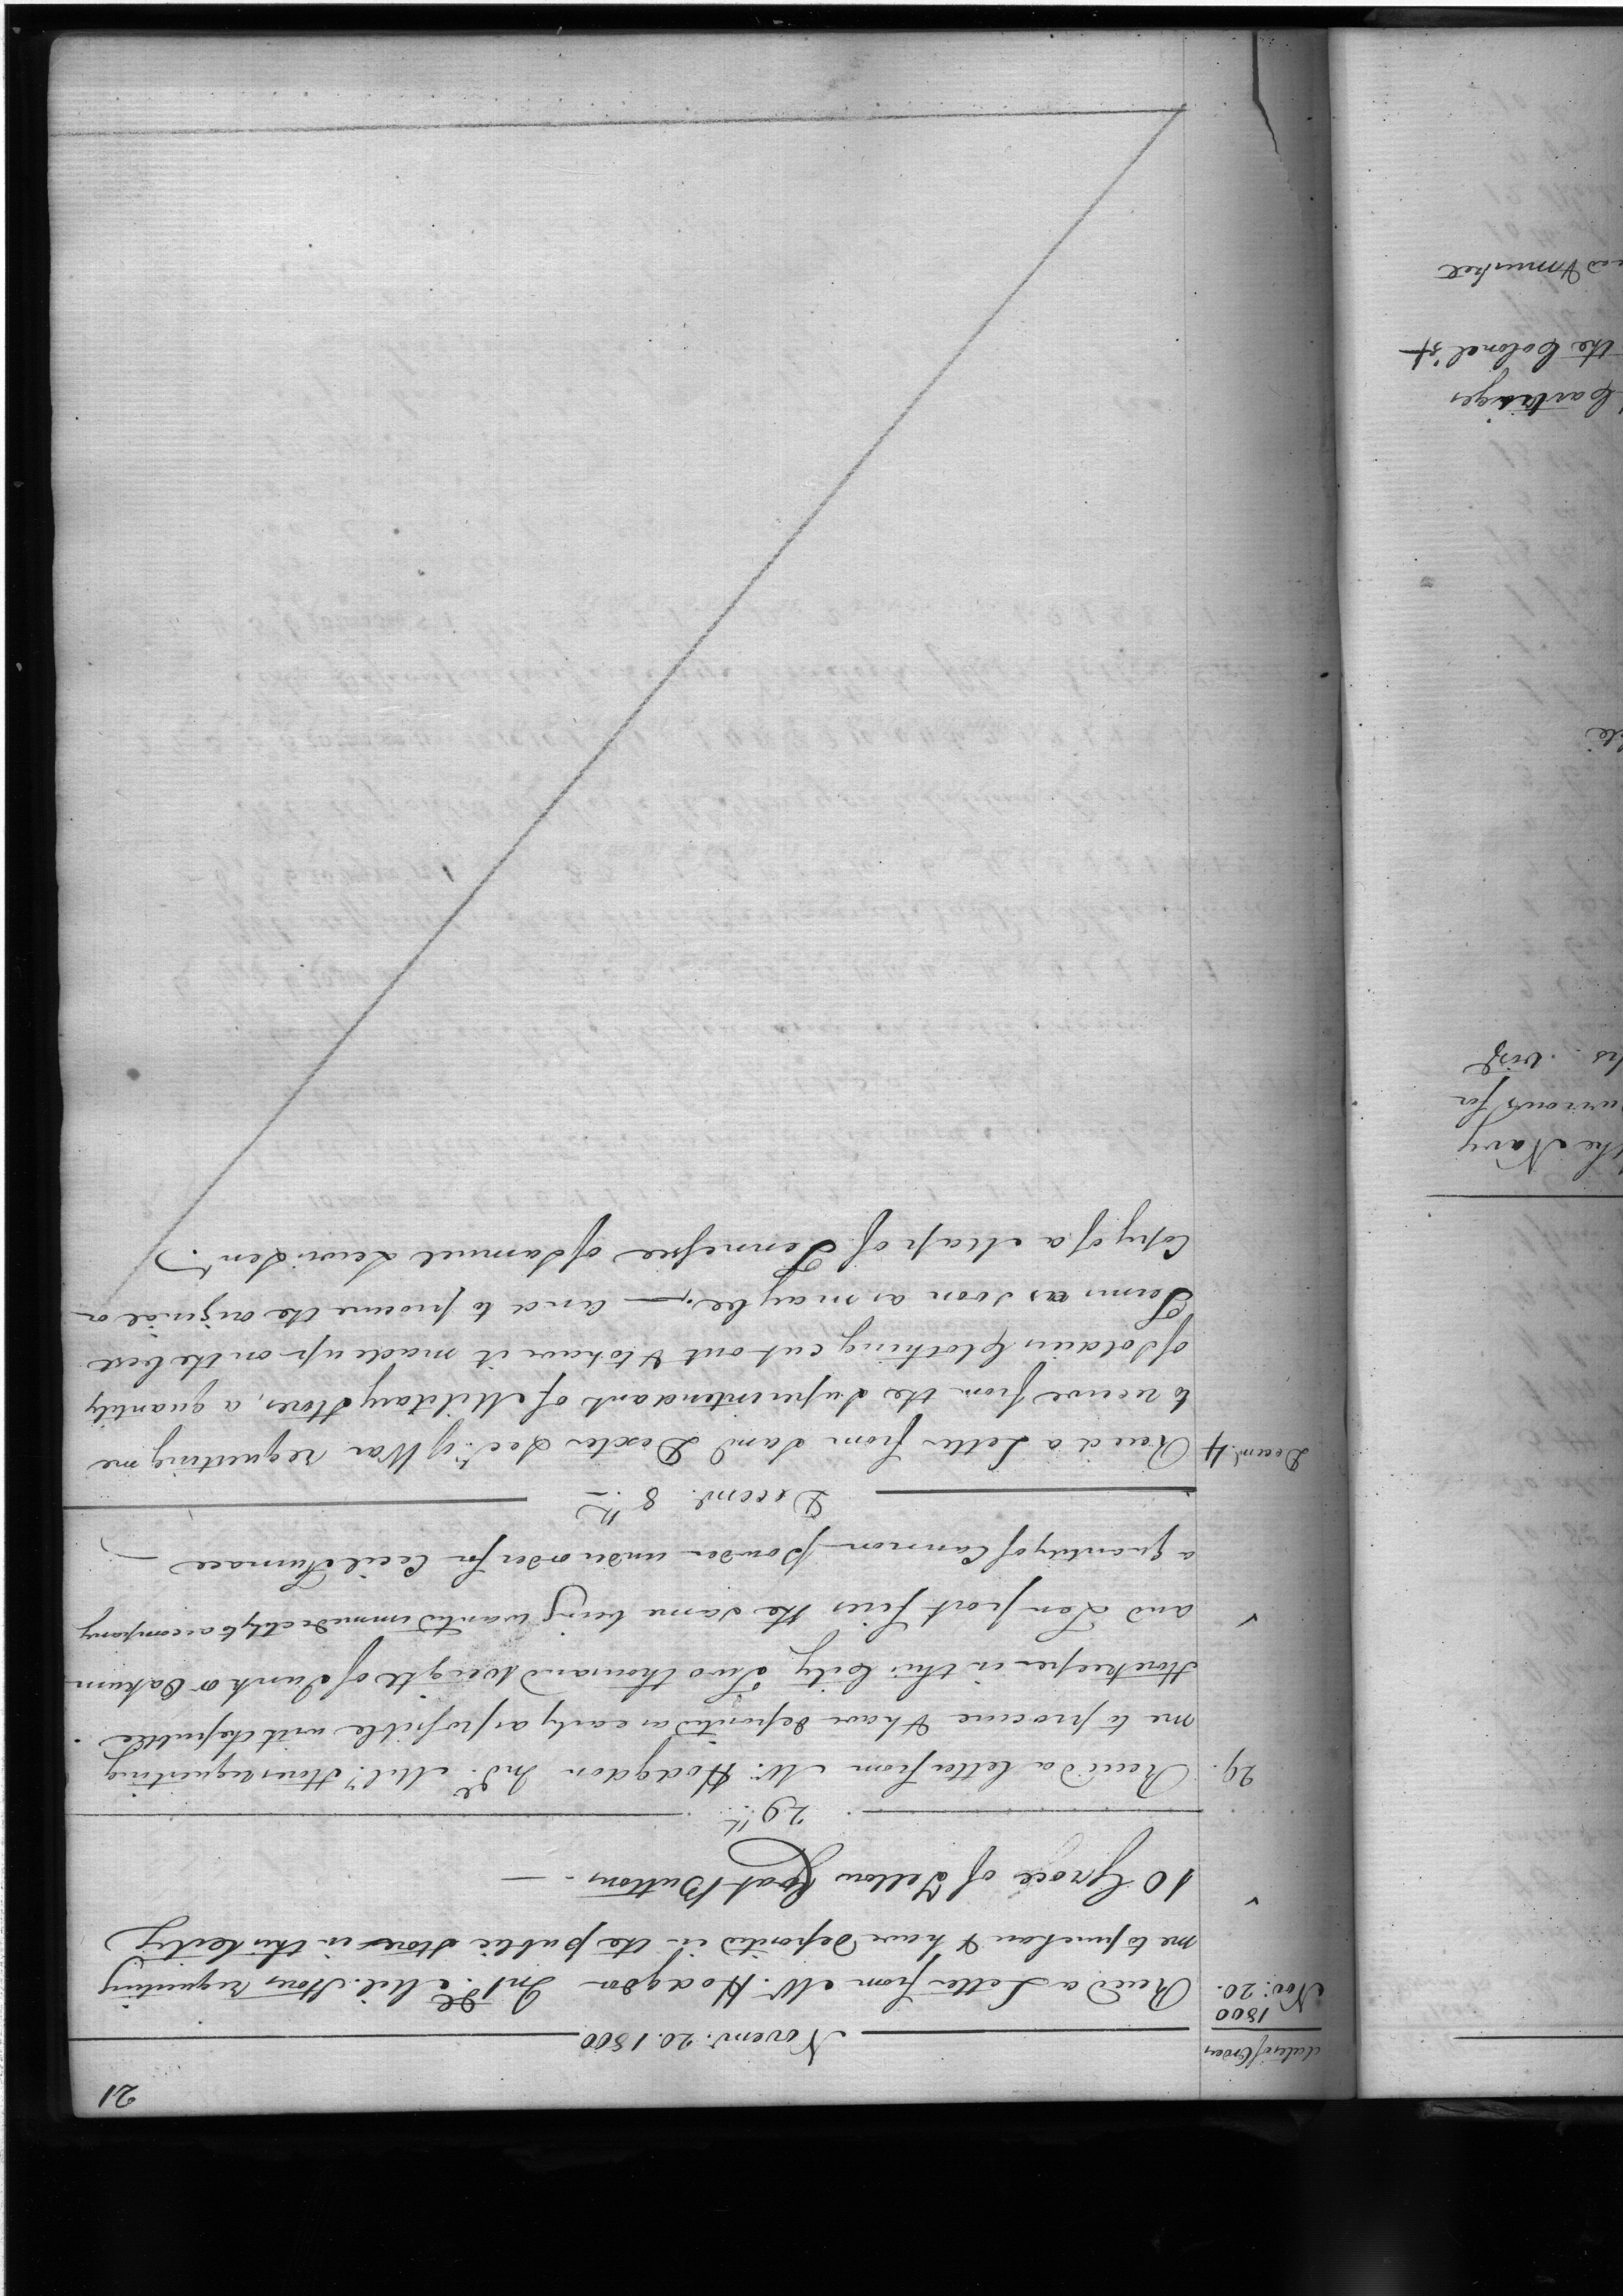 21
dates of Orders
Novemr. 20. 1800
1800
Nov: 20.
Recd. a Letter from Mr. Hodgdon Intdt. Mil. Stores requesting
me to purchase & have deposited in the public Store in this City
10 Groce of Yellow Coat Buttons. —
29th
29.
Recd. a letter from Mr. Hodgdon Indt. Mily. Stores requesting
me to procure & have deposited as early as possible with the public
Storekeeper in this City Two thousand weight of Junk or Oakum
and port fires the same being wanted immediately to accompany
a quantity of Cannon powder under order for Cecil Furnace —
Decemr. 8th
Decemr. 4
Recd. a Letter from Saml. Dexter Secy. of War requesting me
to receive from the Superintendant of Military Stores, a quantity
of Soldiers Clothing cut out & to have it made up on the best
Terms as soon as may be. — and to procure the original or
Copy of a Map of Tennessee of Samuel Lewis Sent.
the Navy
for
vizt
the Colonel's
Cartridges
musket